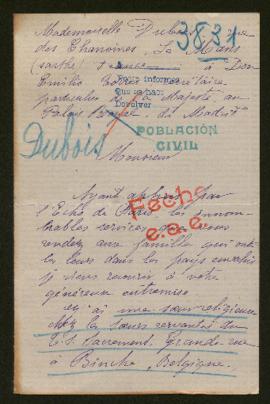 Mademoiselle Dubois, rue
3831
des Chanoines, Le Mans
(Sarthe) France à Don
Emilio Torres, secrétaire
particulier de Sa Majesté, au
Palais Royal de Madrid
Pedir informes
Que se haga
Devolver
POBLACIÓN
CIVIL
Dubois
Monsieur
Fecha
e.a.e.
Ayant appris par
l'Echo de Paris les innom-
brables services que vous
rendez aux familles qui ont
les leurs dans les pays envahis
je viens recourir à votre
généreuse entremise.
J'ai une sœur religieuse
chez les sœurs servantes du
T. S. Sacrement, Grande rue
à Binche, Belgique.